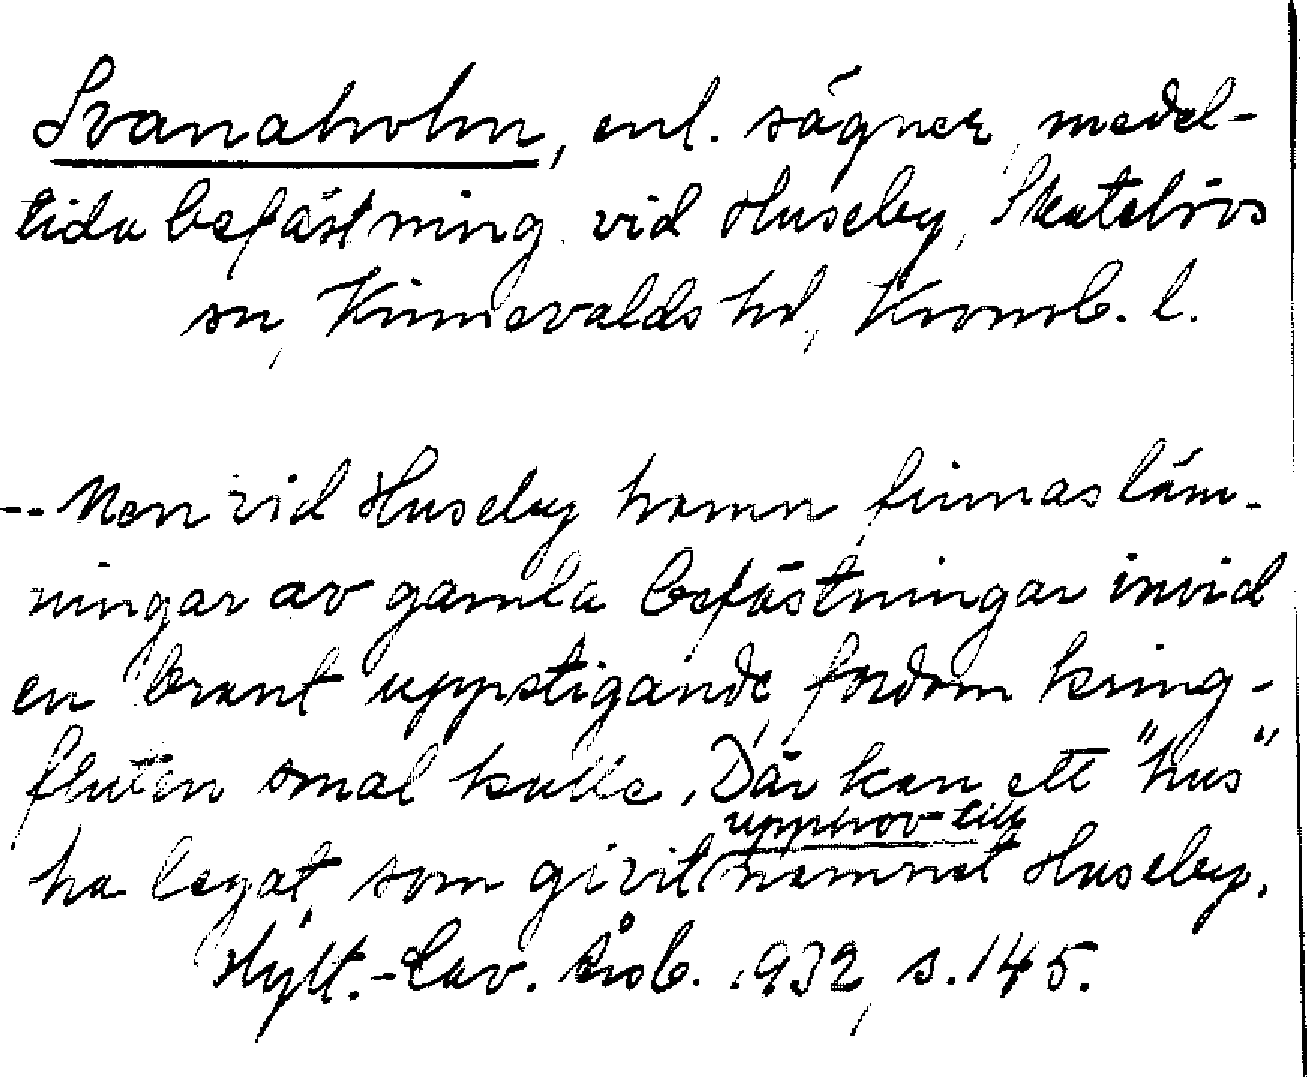 Svanaholm, enl. sägner, medel-
tida befästning vid Huseby, Skatelövs
sn, Kinnevalds hd, Kronob. l.
-- Men vid Huseby hamn finnas läm-
ningar av gamla befästningar invid
en brant uppstigande, fordom kring-
fluten smal kulle. Där kan ett "hus"
upphov till
ha legat, som givit namnet Huseby.
Hylt.-Cav. årsb. 1932, s. 145.